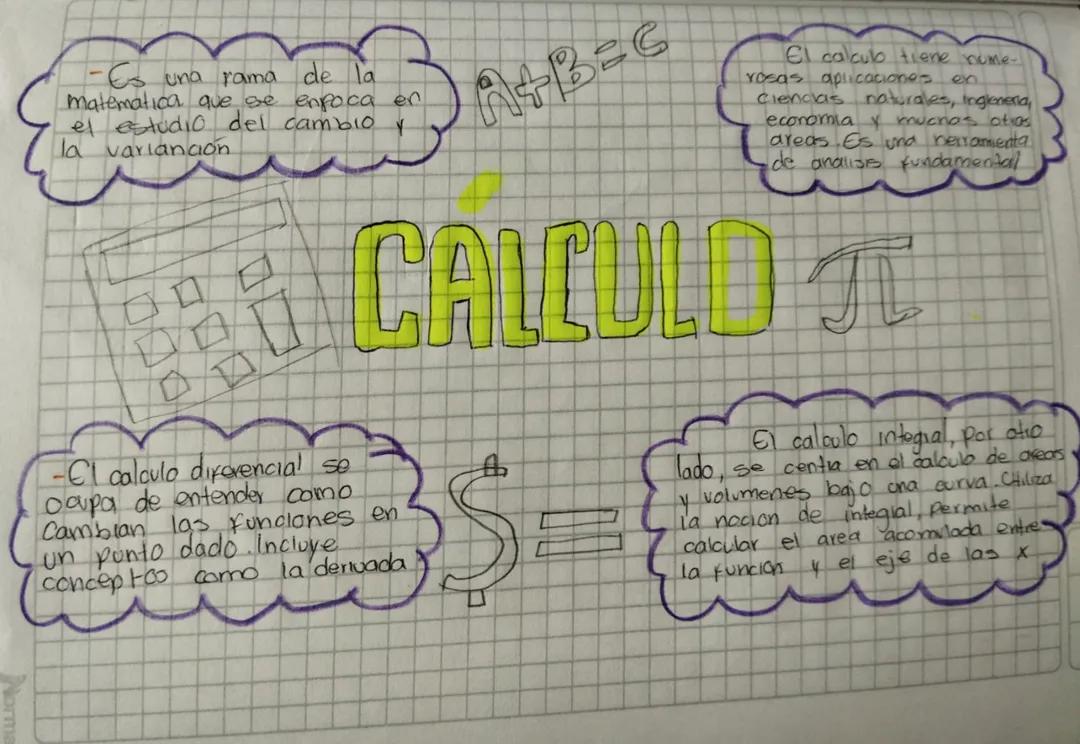 -Es una rama de la
matematica que se enfoca en
el estudio del cambio y
la varianción
A+B=C
El calculo tiene nume-
rosas aplicaciones en
ciencias naturales, ingieneria,
economia y muchas otras
areas. Es una herramienta
de analisis fundamental
CÁLCULO
π
-El calculo diferencial se
ocupa de entender como
cambian las funciones en
un punto dado. Incluye
conceptos como la derivada
$ =
El calculo integral, por otro
lado, se centra en el calculo de areas
y volumenes bajo una curva. Utiliza
la nocion de integral, permite
calcular el area acomulada entre
la funcion y el eje de las x
Norma